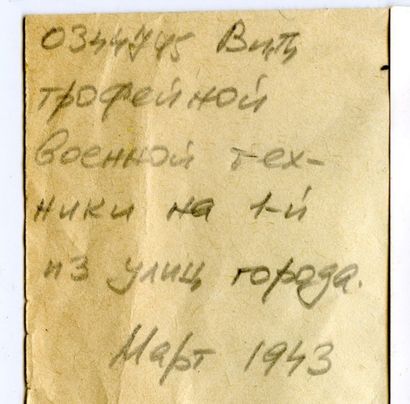 0344745
трофейной
военной тех-
ники на 1-й
из улиц города.
Март 1943